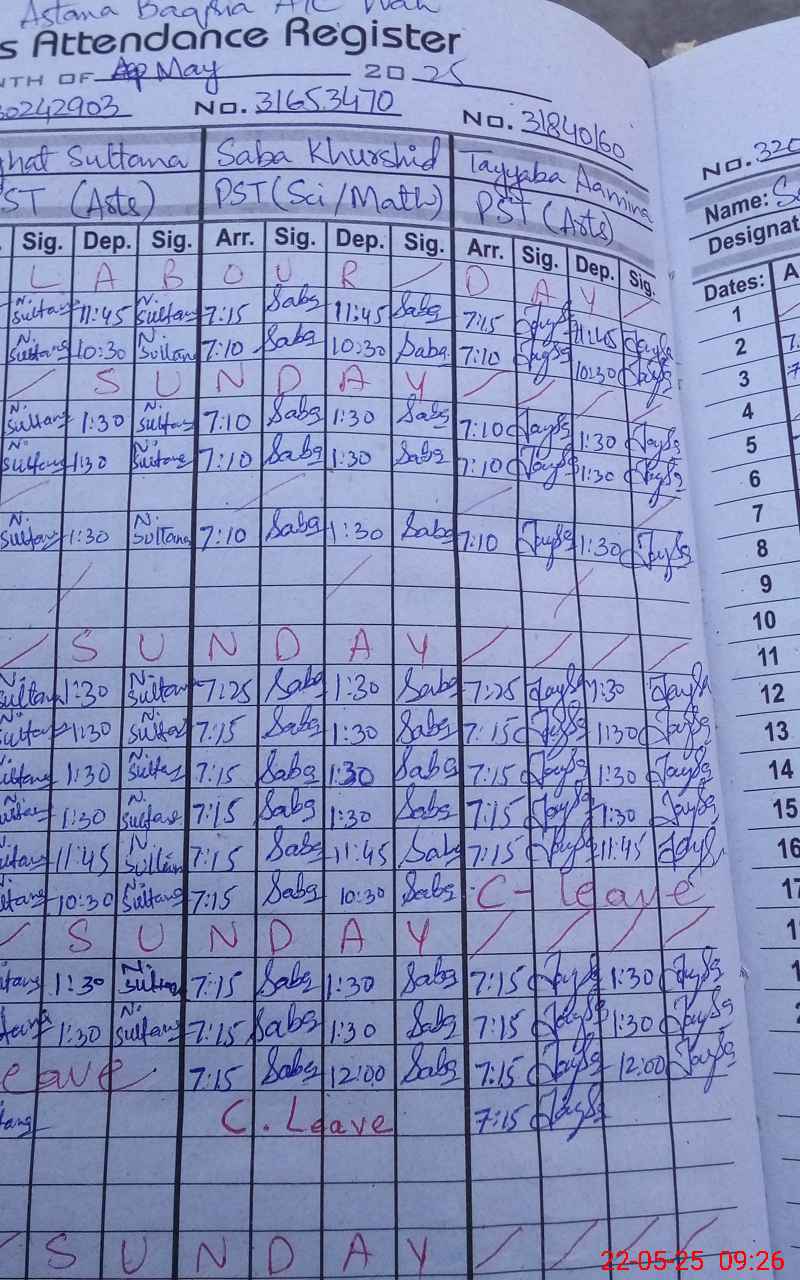 Astana
s Attendance Register
NTH OF May 20 25
30242903 No. 31653470 No. 31840160 No. 320
ghat Sultana Saba Khurshid Tayyaba Aamina Name: S
ST (Arts) PST (Sci/Math) PST (Arts) Designat
Sig. Dep. Sig. Arr. Sig. Dep. Sig. Arr. Sig. Dep. Sig. Dates: A
L A B O U R D A Y 1
N. Sultana 11:45 N. Sultana 7:15 Saba 11:45 Saba 7:15 11:45 2
N. Sultana 10:30 N. Sultana 7:10 Saba 10:30 Saba 7:10 10:30 3
S U N D A Y 4
N. Sultana 1:30 N. Sultana 7:10 Saba 1:30 Saba 7:10 1:30 5
N. Sultana 1:30 N. Sultana 7:10 Saba 1:30 Saba 7:10 1:30 6
7
N. Sultana 1:30 N. Sultana 7:10 Saba 1:30 Saba 7:10 1:30 8
9
10
S U N D A Y 11
N. Sultana 1:30 N. Sultana 7:25 Saba 1:30 Saba 7:25 1:30 12
N. Sultana 1:30 N. Sultana 7:15 Saba 1:30 Saba 7:15 1:30 13
N. ultana 1:30 N. Sultana 7:15 Saba 1:30 Saba 7:15 1:30 14
N. ultana 1:30 N. Sultana 7:15 Saba 1:30 Saba 7:15 1:30 15
N. ultana 11:45 N. Sultana 7:15 Saba 11:45 Saba 7:15 11:45 16
N. ltana 10:30 N. Sultana 7:15 Saba 10:30 Saba C-leave 17
S U N D A Y 1
tana 1:30 N. Sultana 7:15 Saba 1:30 Saba 7:15 1:30
tana 1:30 N. Sultana 7:15 Saba 1:30 Saba 7:15 1:30
eave 7:15 Saba 12:00 Saba 7:15 12:00
tana C. Leave 7:15
S U N D A Y
22-05-25 09:26